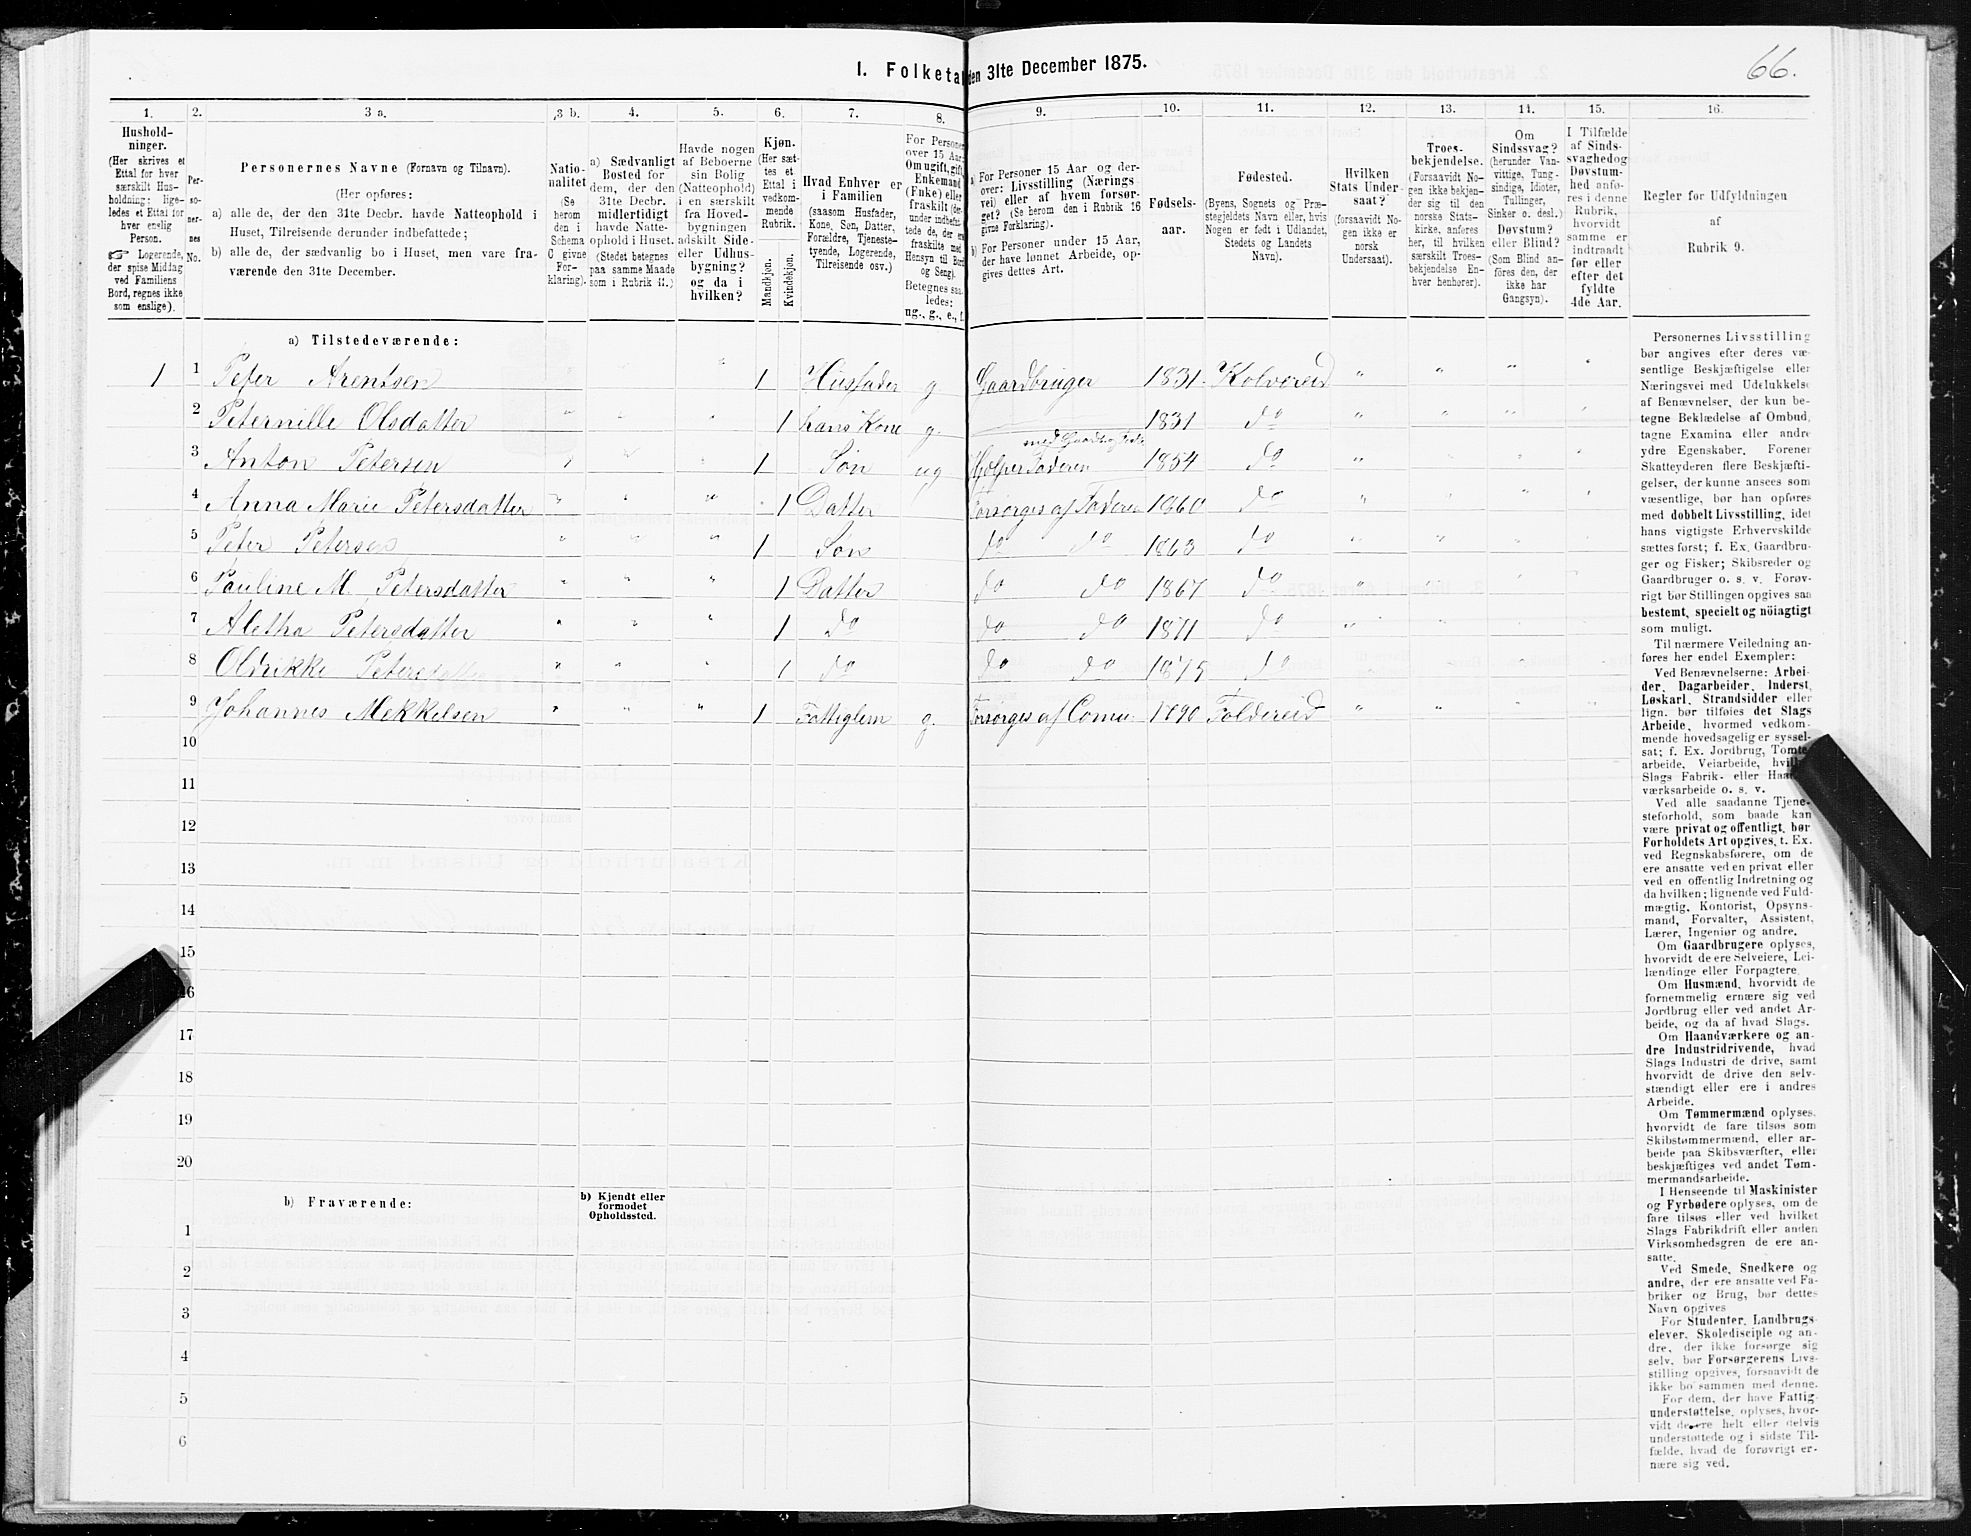 66.
I. Folketal den 31te December 1875.
1. 2. 3 a. 3 b. 4. 5. 6. 7. 8. 9. 10. 11. 12. 13. 14. 15. 16.
Hushold-
ninger.
(Her skrives et
Ettal for hver
særskilt Hus-
holdning; lige-
ledes et Ettal for
hver enslig
Person.
☞ Logerende,
der spise Middag
ved Familiens
Bord, regnes ikke
som enslige).
Per-
so-
ner-
nes
No.
Personernes Navne (Fornavn og Tilnavn).
(Her opføres:
a) alle de, der den 31te Decbr. havde Natteophold i
Huset, Tilreisende derunder indbefattede;
b) alle de, der sædvanlig bo i Huset, men vare fra-
værende den 31te December.
Natio-
nalitet
(Se
herom
den i
Schema
C givne
For-
klaring).
a) Sædvanligt
Bosted for
dem, der den
31te Decbr.
midlertidigt
havde Natte-
ophold i Huset.
(Stedet betegnes
paa samme Maade
som i Rubrik 11.)
Havde nogen
af Beboerne
sin Bolig
(Natteophold)
i en særskilt
fra Hoved-
bygningen
adskilt Side-
eller Udhus-
bygning?
og da i
hvilken?
Kjøn.
(Her sæt-
tes et
Ettal i
vedkom-
mende
Rubrik.
Mandkjøn.
Kvindekjøn.
Hvad Enhver er
i Familien
(saasom Husfader,
Kone, Søn, Datter,
Forældre, Tjeneste-
tyende, Logerende,
Tilreisende osv.)
For Personer
over 15 Aar:
Om ugift, gift,
Enkemand
(Enke) eller
fraskilt (der-
under indbefat-
tede de, der ere
fraskilte med
Hensyn til Bord
og Seng).
Betegnes saa-
ledes:
ug., g., e., f.
a) For Personer 15 Aar og der-
over: Livsstilling (Nærings-
vei) eller af hvem forsør-
get? (Se herom den i Rubrik 16
givne Forklaring).
b) For Personer under 15 Aar,
der have lønnet Arbeide, op-
gives dettes Art.
Fødsels-
aar.
Fødested.
(Byens, Sognets og Præ-
stegjeldets Navn eller, hvis
Nogen er født i Udlandet,
Stedets og Landets
Navn).
Hvilken
Stats Under-
saat?
(forsaavidt No-
gen ikke er
norsk
Undersaat).
Troes-
bekjendelse.
(Forsaavidt No-
gen ikke bekjen-
der sig til den
norske Stats-
kirke, anføres
her, til hvilken
særskilt Troes-
bekjendelse En-
hver henhører).
Om
Sindssvag?
(herunder Van-
vittige, Tung-
sindige, Idioter,
Tullinger,
Sinker o. desl.)
Døvstum?
eller Blind?
(Som Blind an-
føres den, der
ikke har
Gangsyn).
I Tilfælde
af Sinds-
svaghed og
Døvstum-
hed anfø-
res i denne
Rubrik,
hvorvidt
samme er
indtraadt
før eller
efter det
fyldte
4de Aar.
Regler for Udfyldningen
af
Rubrik 9.
a) Tilstedeværende:
1 1 Peter Arentsen " " 1 Husfader g. Gaardbruger 1831 Kolvereid " " " "
2 Peternille Olsdatter " " " 1 hans Kone g. 1831 do " " " "
med
3 Anton Petersen " " " 1 Søn ug Hjælper Faderen 1854 do " " " "
4 Anna Marie Petersdatter " " " 1 Datter Forsørges af Faderen 1860 do " " " "
5 Peter Petersen " " " 1 Søn do do 1863 do " " " "
6 Pauline M. Petersdatter " " " 1 Datter do do 1867 do " " " "
7 Aletha Petersdatter " " " 1 do do do 1871 do " " " "
8 Oldrikke Petersdatter " " " 1 do do do 1875 do " " " "
9 Johannes Mekkelsen " " " 1 Fattiglem g. Forsørges af Comu 1790 Foldereid " " " "
10
11
12
13
14
15
16
17
18
19
20
b) Fraværende:
b) Kjendt eller
formodet
Opholdssted.
1
2
3
4
5
6
Personernes Livsstilling
bør angives efter deres væ-
sentlige Beskjæftigelse eller
Næringsvei med Udelukkelse
af Benævnelser, der kun be-
tegne Beklædelse af Ombud,
tagne Examina eller andre
ydre Egenskaber. Forener
Skatteyderen flere Beskjæfti-
gelser, der kunne ansees som
væsentlige, bør han opføres
med dobbelt Livsstilling, idet
hans vigtigste Erhvervskilde
sættes først; f. Ex. Gaardbru-
ger og Fisker; Skibsreder og
Gaardbruger o. s. v. Forøv-
rigt bør Stillingen opgives saa
bestemt, specielt og nöiagtigt
som muligt.
Til nærmere Veiledning an-
føres her endel Exempler:
Ved Benævnelserne: Arbei-
der, Dagarbeider, Inderst,
Løskarl, Strandsidder eller
lign. bør tilføies det Slags
Arbeide, hvormed vedkom-
mende hovedsagelig er syssel-
sat; f. Ex. Jordbrug, Tomte-
arbeide, Veiarbeide, hvilket
Slags Fabrik- eller Haand-
værksarbeide o. s. v.
Ved alle saadanne Tjene-
steforhold, som baade kan
være privat og offentligt, bør
Forholdets Art opgives, t. Ex.
ved Regnskabsførere, om de
ere ansatte ved en privat eller
ved en offentlig Indretning og
da hvilken; lignende ved Fuld-
mægtig, Kontorist, Opsyns-
mand, Forvalter, Assistent,
Lærer, Ingeniør og andre.
Om Gaardbrugere oplyses,
hvorvidt de ere Selveiere, Lei-
lændinge eller Forpagtere.
Om Husmænd, hvorvidt de
fornemmelig ernære sig ved
Jordbrug eller ved andet Ar-
beide, og da af hvad Slags.
Om Haandværkere og an-
dre Industridrivende, hvad
Slags Industri de drive, samt
hvorvidt de drive den selv-
stændigt eller ere i andres
Arbeide.
Om Tømmermænd oplyses,
hvorvidt de fare tilsøs som
Skibstømmermænd, eller ar-
beide paa Skibsværfter, eller
beskjæftiges ved andet Tøm-
mermandsarbeide.
I Henseende til Maskinister
og Fyrbødere oplyses, om de
fare tilsøs eller ved hvilket
Slags Fabrikdrift eller anden
Virksomhedsgren de ere an-
satte.
Ved Smede, Snedkere og
andre, der ere ansatte ved Fa-
briker og Brug, bør dettes
Navn opgives
For Studenter, Landbrugs-
elever, Skoledisciple og an-
dre, der ikke forsørge sig
selv, bør Forsørgerens Livs-
stilling opgives, forsaavidt de
ikke bo sammen med denne.
For dem, der have Fattig-
understøttelse, oplyses, hvor-
vidt de ere helt eller delvis
understøttede og i sidste Til-
fælde, hvad de forøvrigt er-
nære sig ved.